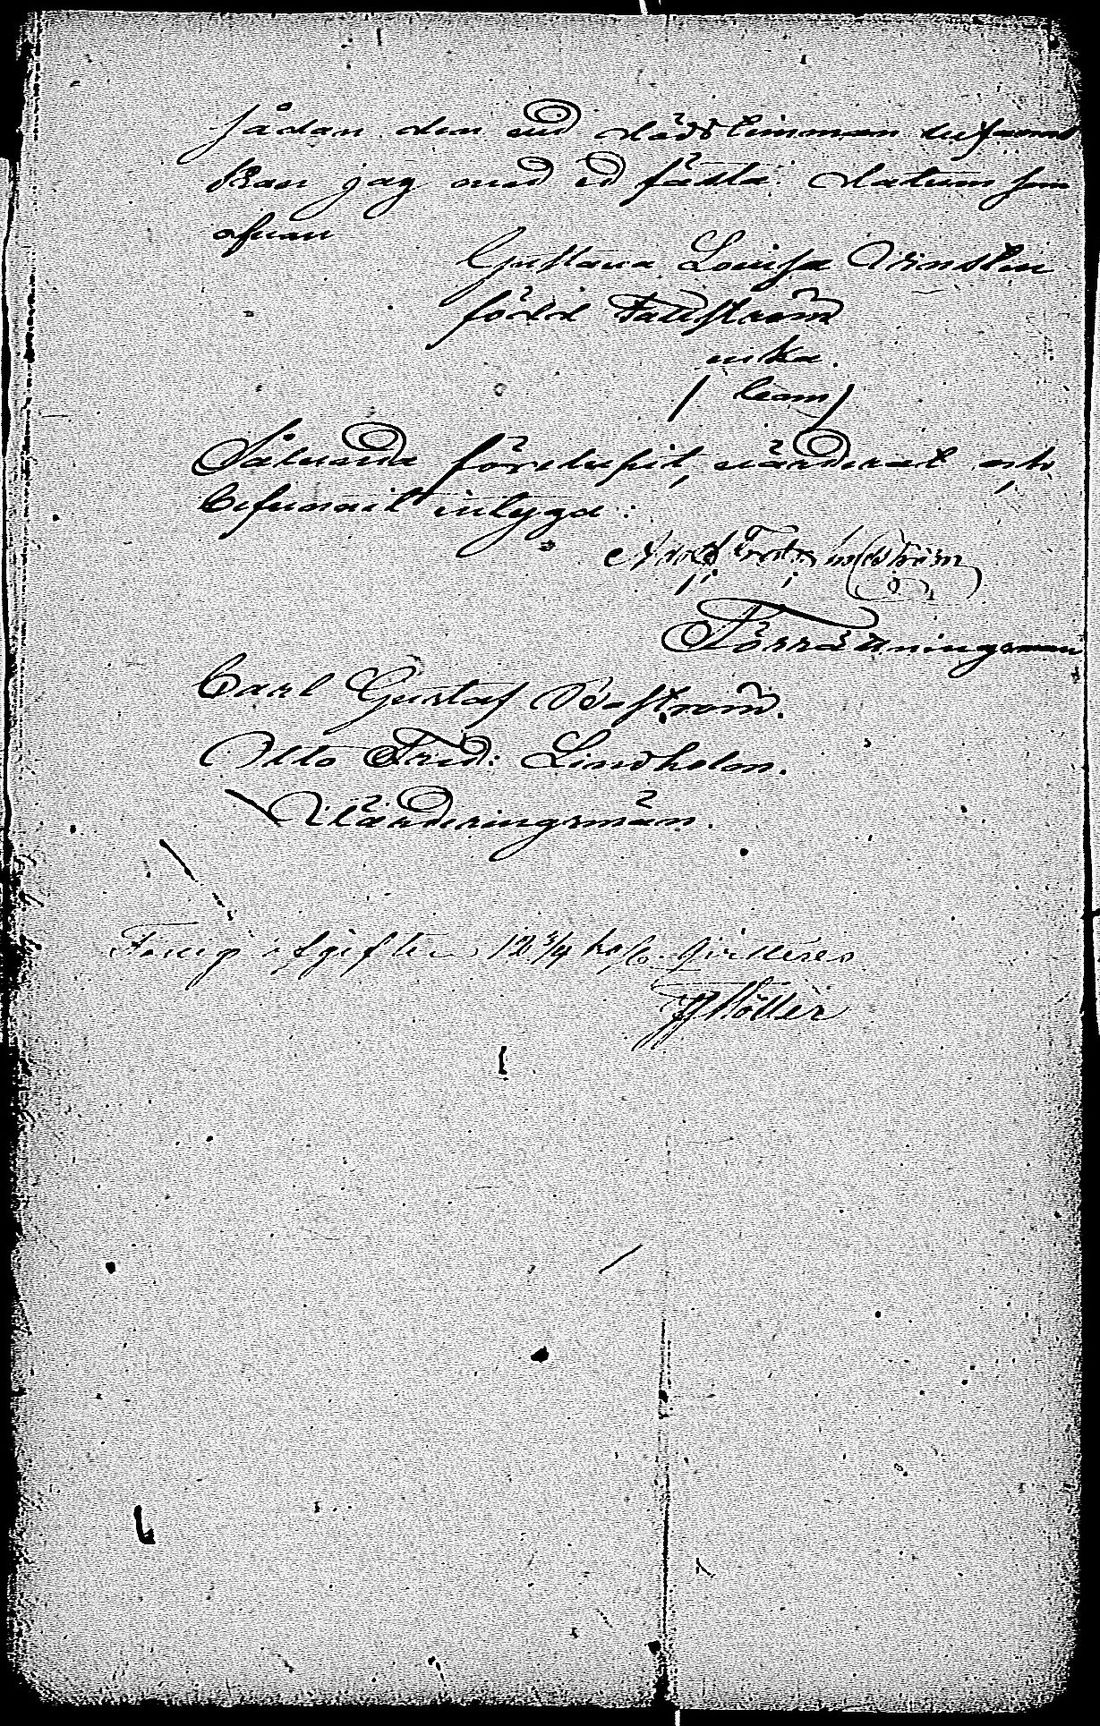 sådan den vid dödstimman befanns
kan jag med ed fästa. Datum som
ofvan
Gustava Lovisa
född Fallström
enka.
/ Leam /
Sålunda föredrefvit, värderat och
befunnit intyga:
Förrättningsman
Carl Gustaf Boström.
Otto Fred: Lindholm.
Värderingsmän
Fattig afgifter 12 3/4 kop. qvitteras
Möller